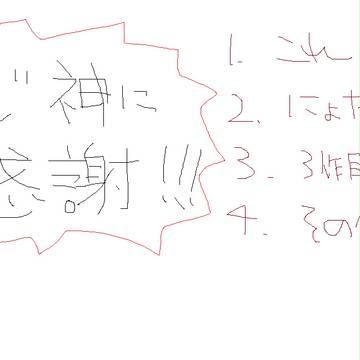 神に
感謝!!!
1. これ
2. にょた
3. 3作目
4. その